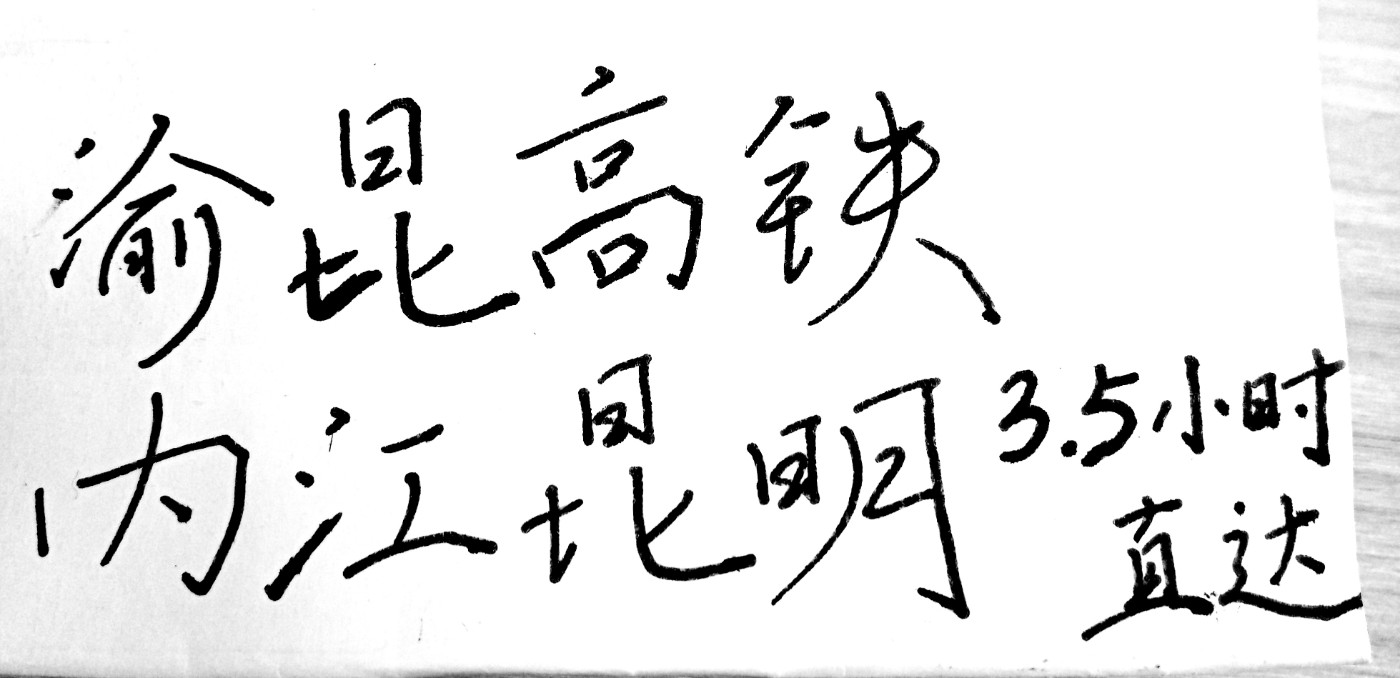 渝昆高铁
内江昆明3.5小时
直达